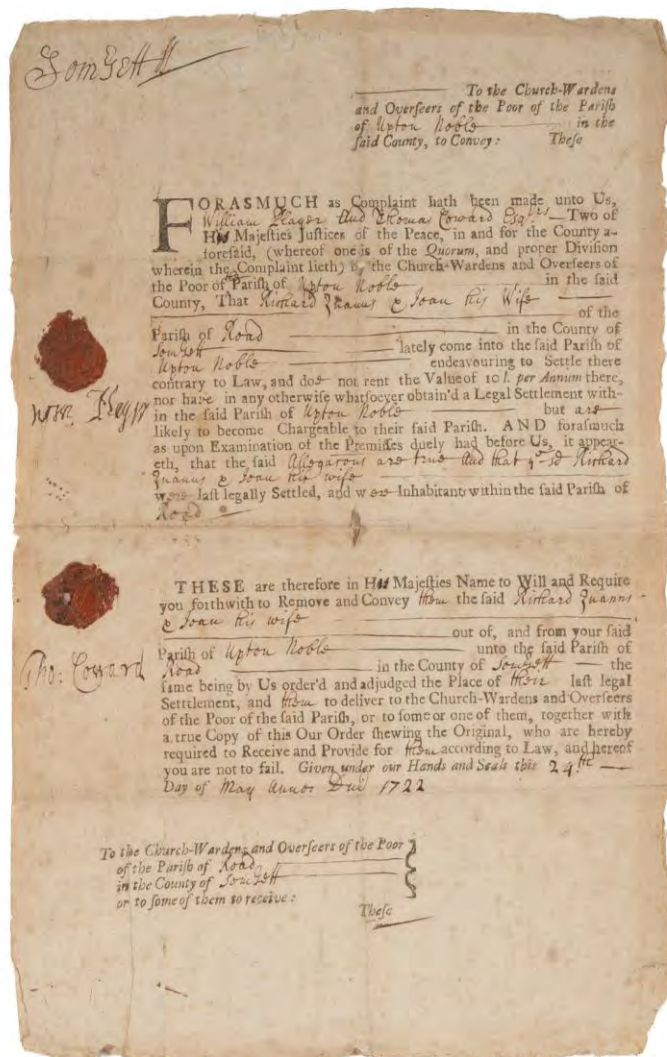 Somsett
To the Church-Wardens
and Overseers of the Poor of the Pariſh
of Upton Noble in the
ſaid County, to Convey: Theſe
FORASMUCH as Complaint hath been made unto Us,
William Player And Thomas Coward Esqrs — Two of
His Majeſties Juſtices of the Peace, in and for the County a-
foreſaid, (whereof one is of the Quorum, and proper Diviſion
wherein the Complaint lieth) by the Church-Wardens and Overſeers of
the Poor of the Pariſh of Upton Noble in the ſaid
County, That Richard & Joan his Wife
of the
Pariſh of Road in the County of
Somsett lately come into the ſaid Pariſh of
Upton Noble endeavouring to Settle there
contrary to Law, and doe not rent the Value of 10 l. per Annum there,
nor have in any otherwiſe whatſoever obtain'd a Legal Settlement with-
in the ſaid Pariſh of Upton Noble but are
likely to become Chargeable to their ſaid Pariſh. AND foraſmuch
as upon Examination of the Premiſſes duely had before Us, it appear-
eth, that the ſaid Allegations are true And that ye sd Richard
& Joan his wife
were laſt legally Settled, and were Inhabitants within the ſaid Pariſh of
Road
Wm Player
THESE are therefore in His Majeſties Name to Will and Require
you forthwith to Remove and Convey them the ſaid Richard
& Joan his wife
out of, and from your ſaid
Pariſh of Upton Noble unto the ſaid Pariſh of
Road in the County of Somsett — the
ſame being by Us order'd and adjudged the Place of their laſt legal
Setttlement, and them to deliver to the Church-Wardens and Overſeers
of the Poor of the ſaid Pariſh, or to ſome or one of them, together with
a true Copy of this Our Order ſhewing the Original, who are hereby
required to Receive and Provide for them according to Law, and hereof
you are not to fail. Given under our Hands and Seals this 24th —
Day of May Annoe Dni 1722
Tho: Coward
To the Church-Wardens and Overſeers of the Poor
of the Pariſh of Road
in the County of Somsett
or to ſome of them to receive:
Theſe